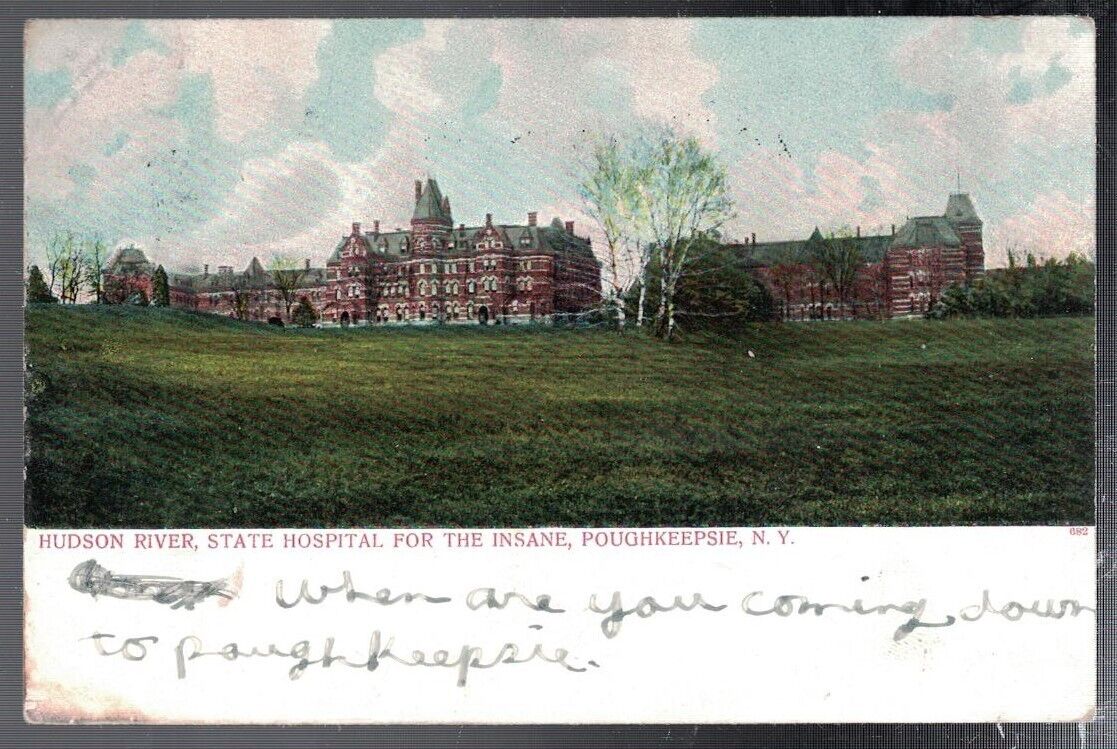 HUDSON RIVER, STATE HOSPITAL FOR THE INSANE, POUGHKEEPSIE, N. Y.
682
When are you coming down
to poughkeepsie.